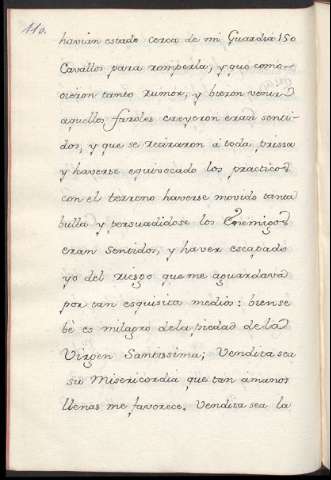 110.
havian estado cerca de mi Guardia 150
Cavallos para romperla; y que como
oieron tanto rumor, y bieron venir
aquellos faroles creyeron eran senti-
dos, y que se retiraron à toda prissa
y haverse equivocado los practicos
con el terreno haverse movido tanta
bulla y persuadidose los Enemigos
eran sentidos, y haver escapado
yo del riesgo que me aguardava
por tan esquisito medio: biense
bè es milagro dela piedad de la
Virgen Santissima; Vendita sea
su Misericordia que tan amanos
llenas me favorece. Vendita sea la